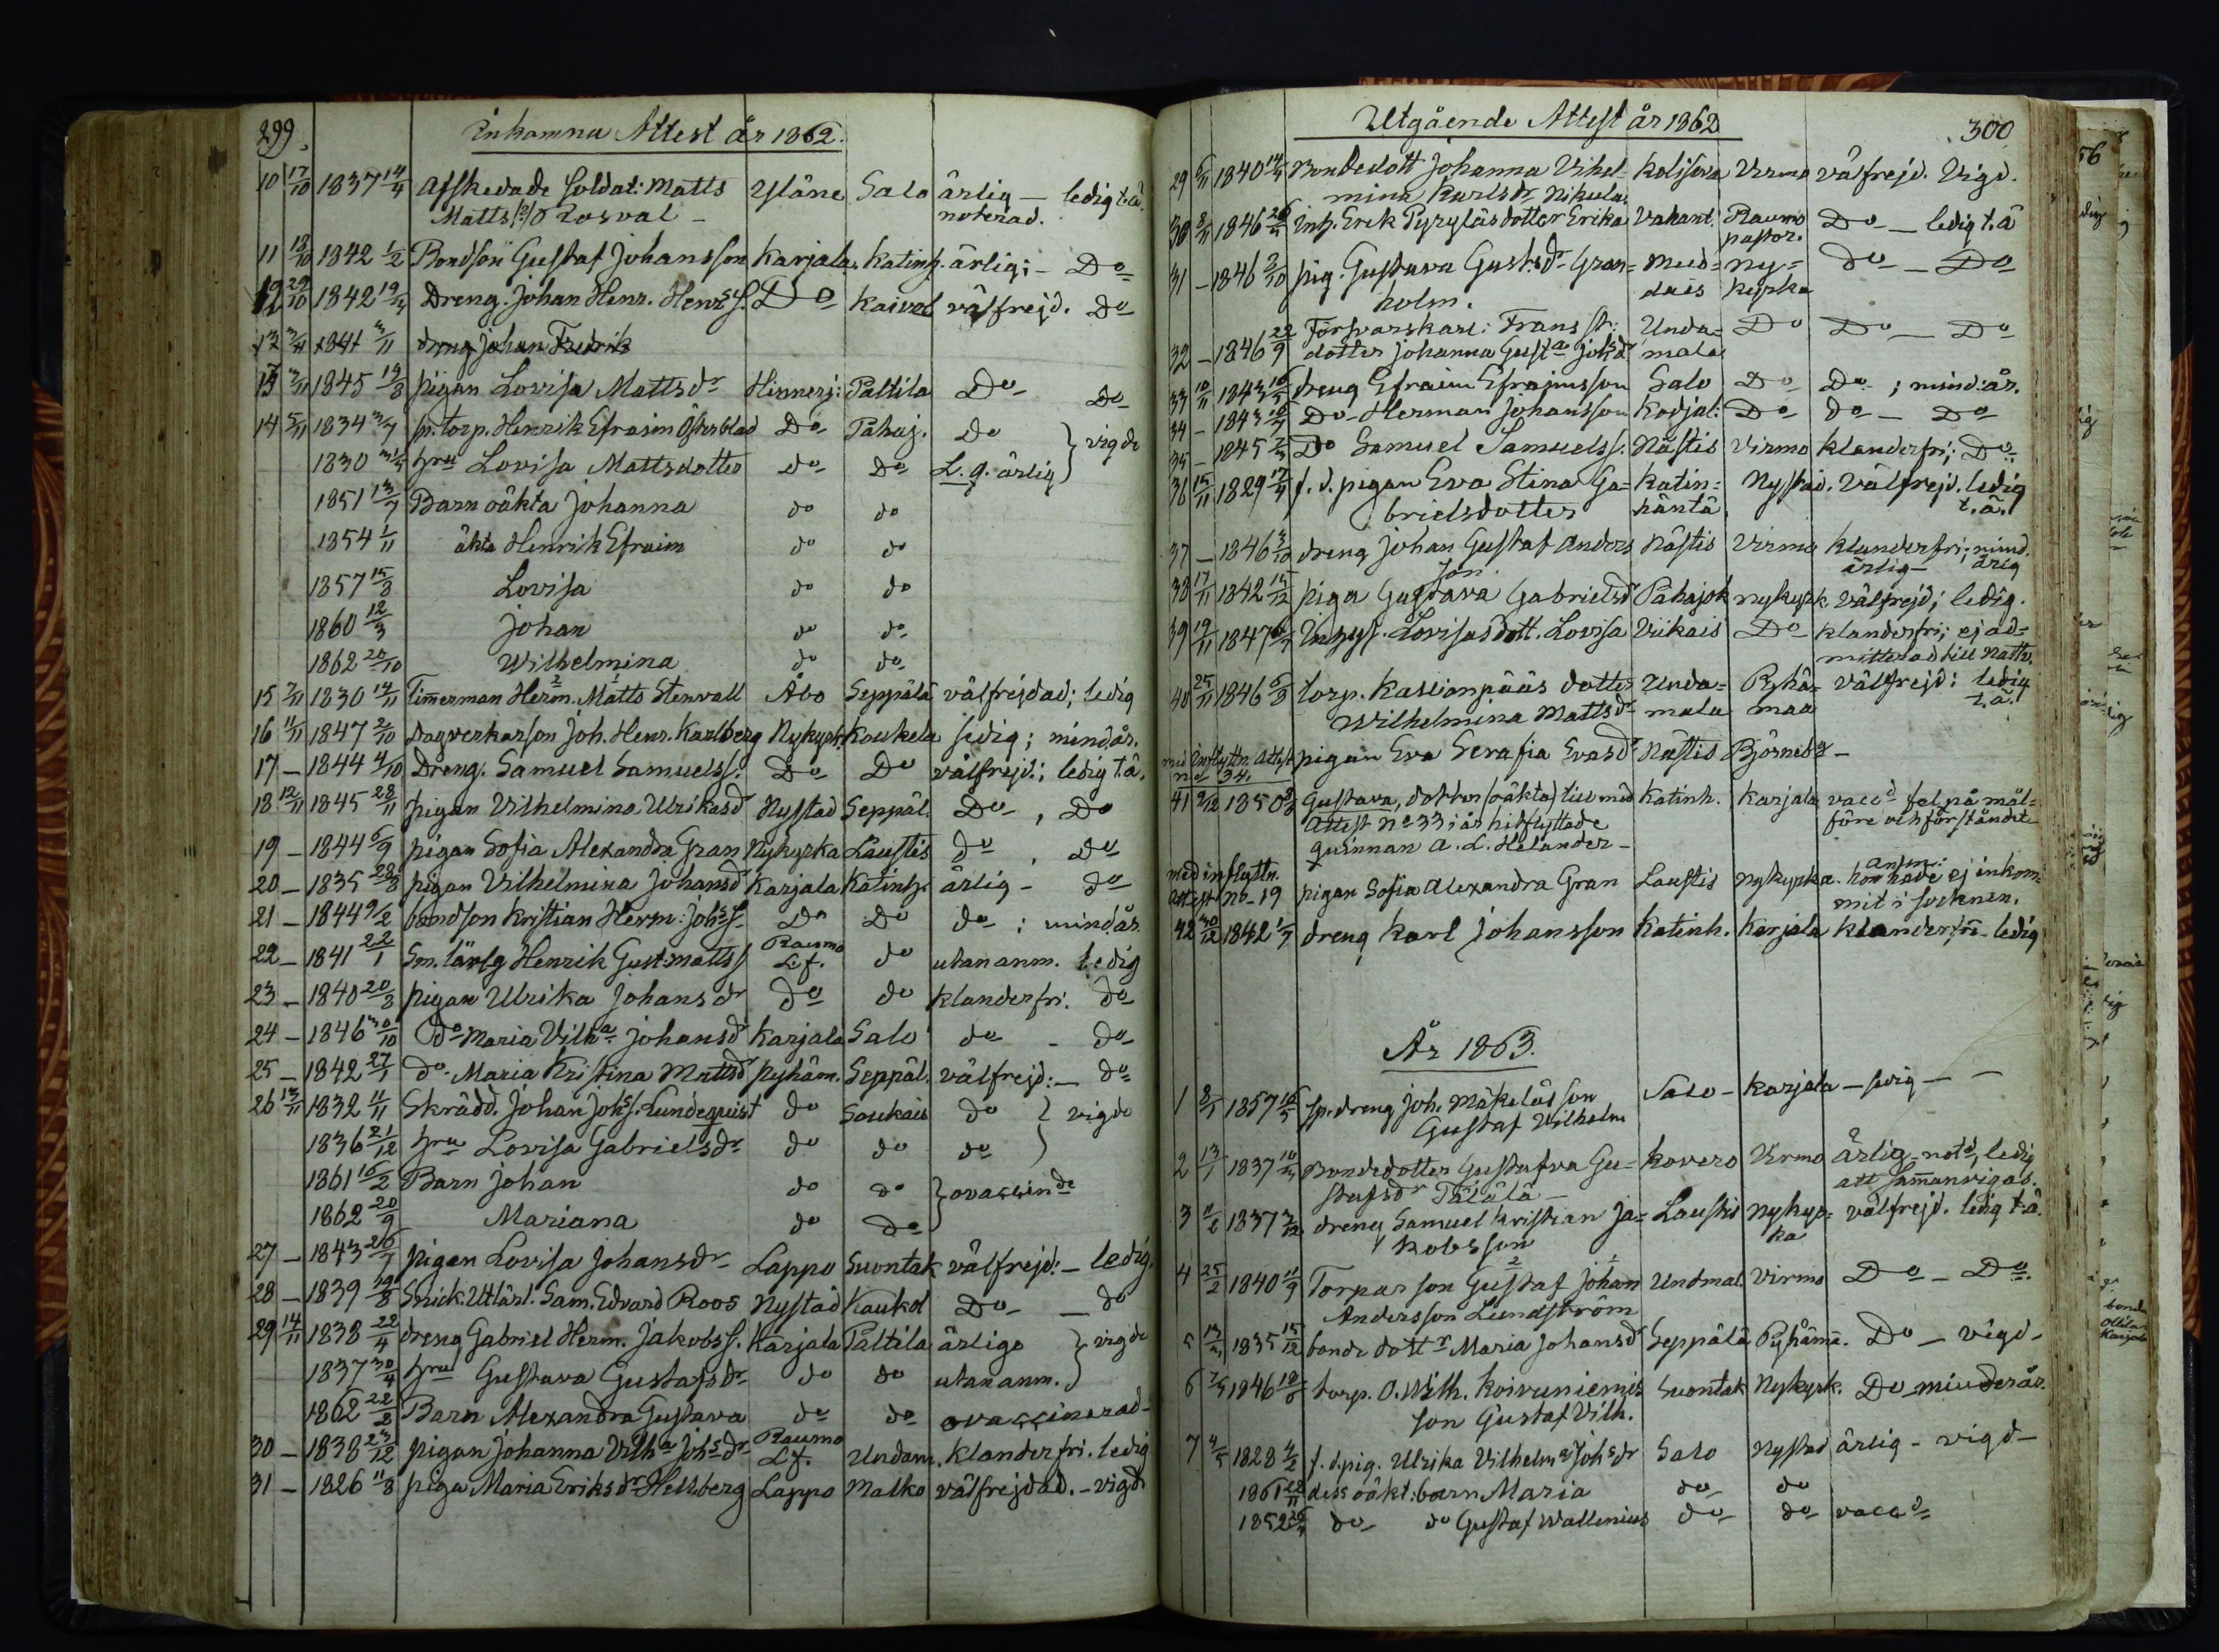 299.
Inkomna Attest år 1862.
10 17/10 1837 14/4 Afskedade soldat: Matts Yläne Salo ärlig — ledig t.ä.
Matts s. Rosval — noterad.
11 18/10 1842 1/2 Bondson Gustaf Johansson Karjala Katinh. ärlig; — Do
12 29/10 1842 19/4 Dreng. Johan Henr. Henr.s. Do Kaivol välfrejd. Do
13 3/11 1841 3/11 dreng Johan Fredrik
13 3/11 1845 19/8 pigan Lovisa Mattsdr Hinnerj: Paltila Do Do
14 5/11 1834 3/7 sp. torp. Henrik Efraim Österblad Do Pahaj. Do } vigde
1830 31/5 hru Lovisa Mattsdotter do Do L. g. ärlig
1851 13/7 Barn oäkta Johanna do do
1854 1/11 äkta Henrik Efraim do do
1857 15/8 Lovisa do do
1860 12/3 Johan do do
1862 20/10 Wilhelmina do do
15 7/11 1830 14/11 Timmerman Herm. Matts Stenvall Åbo Seppälä välfrejdad; ledig
16 11/11 1847 2/10 Dagverkarson Joh. Henr. Karlberg Nykyrk. Koukela sedig; mind.år.
17 — 1844 4/10 Dreng. Samuel Samuelss. Do Do välfrejd.; ledig t.ä.
18 12/11 1845 28/11 pigan Vilhelmina Ulrikasdr Nystad Seppäl. Do , Do
19 — 1844 6/9 pigan Sofia Alexandra Gran Nykyrka Laustis do , do
20 — 1835 28/8 pigan Vilhelmina Johansdr Karjala Katinh. ärlig — do
21 — 1844 9/2 bondson Kristian Herm: Johs.s. Do Do do ; mind.år.
22 — 1841 22/1 Sm. lärlg Henrik Gust: Mattss. Raumo Lf. do utan anm. ledig
23 — 1840 20/3 pigan Ulrika Johansdr do do klanderfri. do
24 — 1846 30/10 do Maria Vilha Johansdr Karjala Salo do — do
25 — 1842 27/1 do Maria Kristina Mattsdr Pyhäm. Seppäl. välfrejd: — do
26 13/11 1832 11/11 Skrädd. Johan Johs.s. Lundequist do Soukais do } vigde
1836 21/12 hru Lovisa Gabrielsdr do do do
1861 16/2 Barn Johan do do } ovaccinde
1862 20/9 Mariana do do
27 — 1843 26/7 pigan Lovisa Johansdr Lappo Suontak välfrejd: — ledig.
28 — 1839 19/8 Snick. Utlärl. Sam. Edvard Roos Nystad Koukol Do — do
29 14/11 1838 22/4 dreng Gabriel Herm. Jakobss. Karjala Paltila ärliga } vigde
1837 30/4 hru Gustava Gustafsdr do do utan anm.
1862 22/2 Barn Alexandra Gustava do do ovaccinerad
30 — 1838 23/12 pigan Johanna Vilha Johsdr Raumo Lf. Undam. klanderfri. ledig
31 — 1826 11/8 piga Maria Eriksdr Hellberg Lappo Malko välfrejdad. — vigd
Utgående Attest år 1862 300
29 6/11 1840 14/4 Bondedott Johanna Vihel- Kolisova Virmo välfrejd. Vigd.
mina Karlsdr Nikula
30 8/11 1846 26/4 Inh. Erik Pyryläs dotter Erika Vahant. Raumo pastor. Do — ledig t.ä
31 — 1846 2/10 pig. Gustava Gustsdr Gran- Meed- Ny- do — Do
holm. dais kyrka
32 — 1846 22/9 Försvarskarl: Frans s. Unda- Do Do — Do
dotter Johanna Gusta Johsdr mala
33 10/11 1843 16/5 dreng Efraim Efraimsson Salo Do Do ; mind:år.
34 — 1843 Do Herman Johansson Kodjal: Do do — Do
35 — 1845 Do Samuel Samuelss. Nästis Virmo klanderfri; Do
36 15/11 1829 17/4 f. d. pigan Eva Stina Ga- Katin- Nystad. Välfrejd. ledig
brielsdotter häntä t.ä.
37 — 1846 3/10 dreng Johan Gustaf Anders Nästis Virmo klanderfri; mind.
son. ärlig — årig
38 17/11 1842 15/12 piga Gustava Gabrielsdr Pahajok Nykyrk. Välfrejd; ledig.
39 19/11 1847 Inhys. Lovisas dott. Lovisa Viikais Do klanderfri; ej ad-
mitterad till Nattv.
40 25/11 1846 6/8 torp. Kallionpääs dotter Unda- Pyhä- välfrejd: ledig
Wilhelmina Mattsdr mala maa t.ä.
med inflyttn. Attest No 34. pigan Eva Serafia Evasdr Nästis Björneb. —
41 9/12 1850 Gustava, dotter (oäkta) till med Katinh. Karjala vaccd fel på mål-
Attest No 33 i år hitflyttade före och förståndet
quinnan A. L. Helander —
med inflyttn. attest no — 19 pigan Sofia Alexandra Gran Laustis Nykyrka. anm: hon hade ej inkom-
mit i socknen.
42 30/12 1842 1/7 dreng Karl Johansson Katinh. Karjala klanderfri — ledig
År 1863.
1 8/1 1857 sp. dreng Joh. Mäkeläs son Salo — Karjala — sedig —
Gustaf Wilhelm
2 13/1 1837 Bondedotter Gustafva Gu- Kovero Virmo ärlig — notd, ledig
stafsdr Tälälä — att sammanvigas.
3 1837 dreng Samuel Kristian Ja- Laustis Nykyr- välfrejd. ledig t.ä.
kobsson ka
4 25/2 1840 11/9 Torpar son Gustaf Johan Undmal. Virmo Do — Do.
Andersson Lundström
5 1835 15/12 bonde dottr Maria Johansdr Seppälä Pyhäma. Do — vigd —
6 1846 torp. O. Wilh. Koivuniemis Suontak Nykyrk. Do minderår.
son Gustaf Vilh.
7 1828 f. d. pig. Ulrika Vilhelma Johsdr Salo Nystad ärlig — vigd —
1861 des oäkt: barn Maria do do
1852 do do Gustaf Wallenius do do vaccd